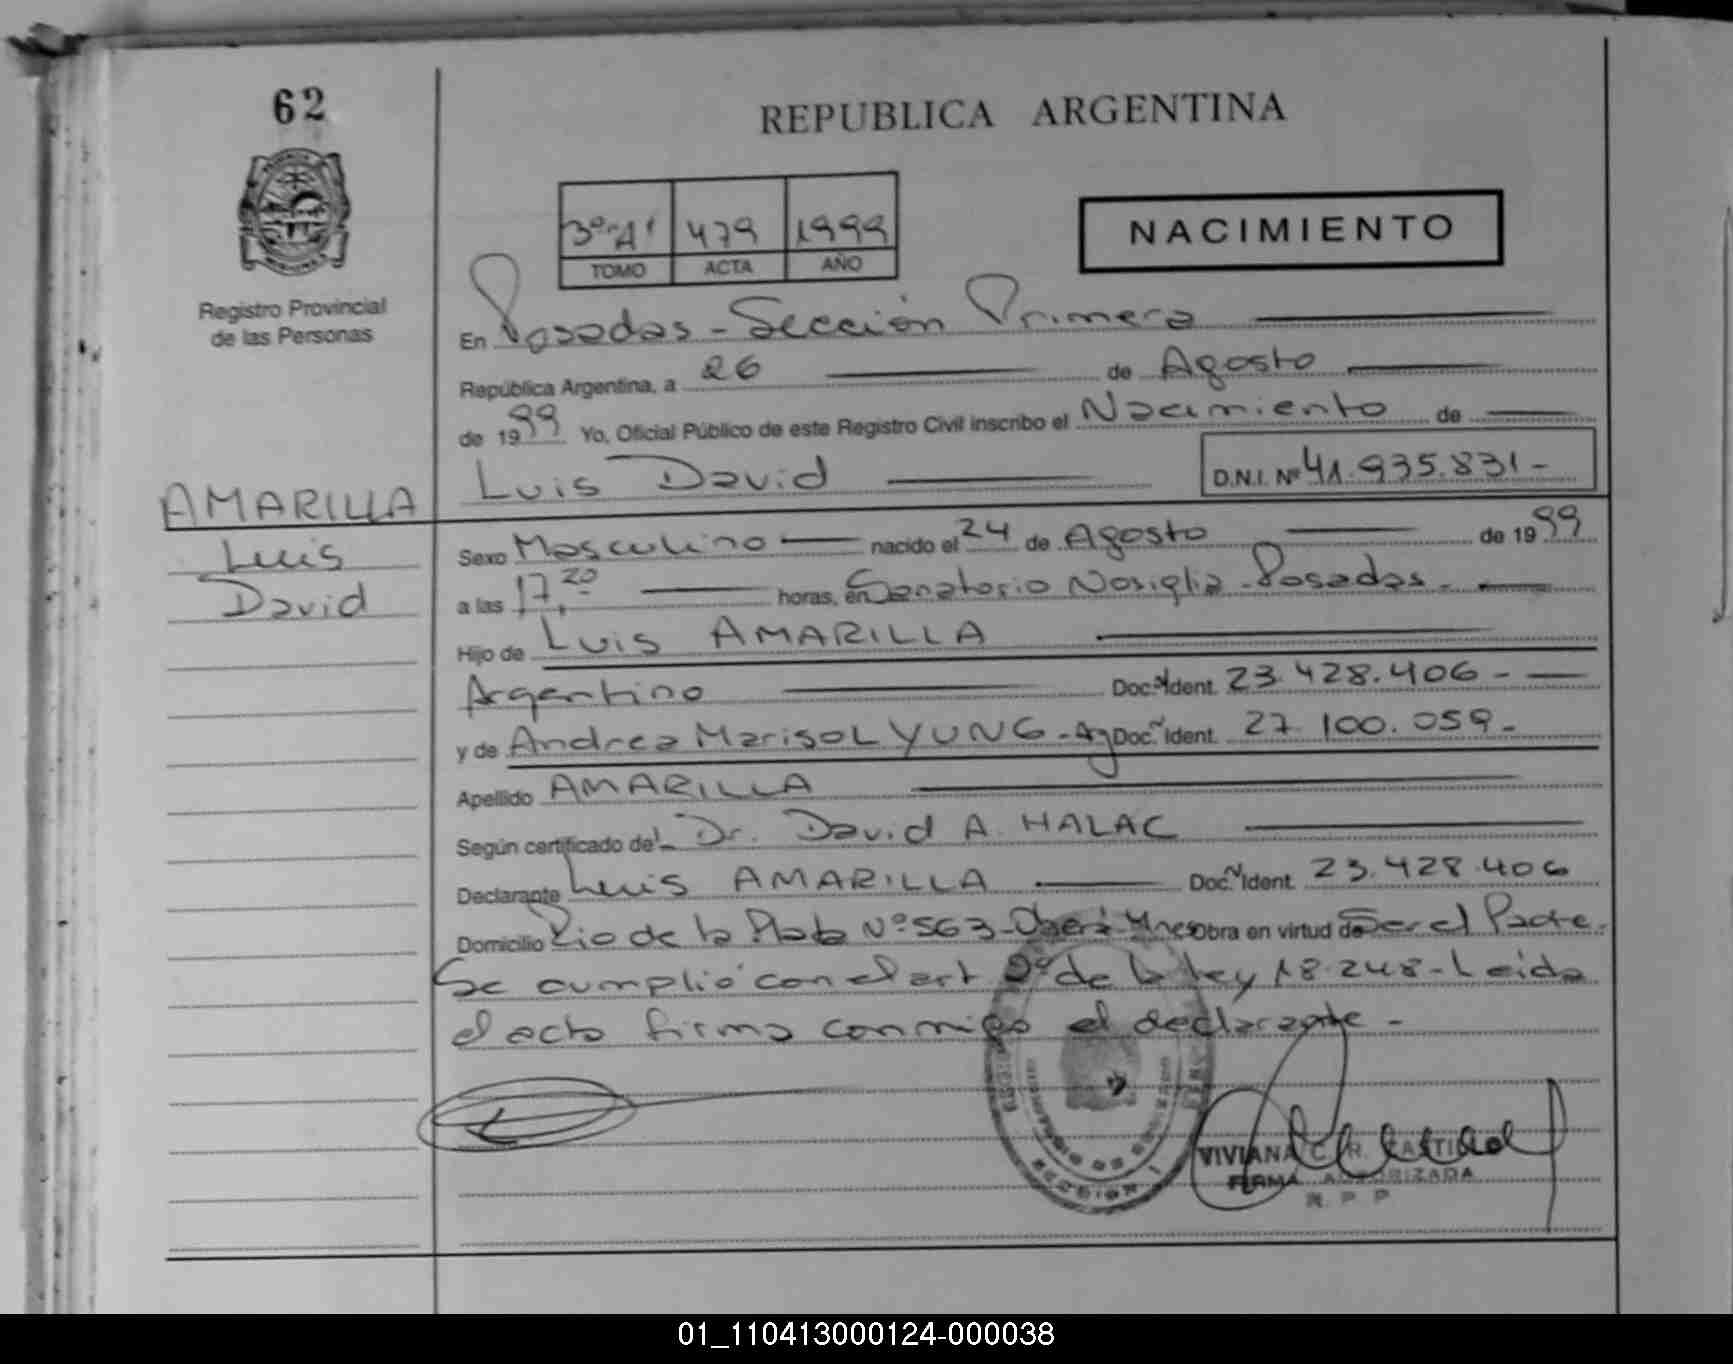 62
REPUBLICA ARGENTINA
Registro Provincial
de las Personas
3º "A" 479 1999
TOMO ACTA AÑO
NACIMIENTO
En Posadas - Sección Primera
República Argentina, a 26 de Agosto
de 1999 Yo, Oficial Público de este Registro Civil inscribo el Nacimiento de
Luis David D.N.I. Nº 41.935.831-
AMARILLA
Luis
David
Sexo Masculino nacido el 24 de Agosto de 1999
a las 17,20 horas, en Sanatorio Nosiglia - Posadas -
Hijo de Luis AMARILLA
Argentino Doc. Ident. 23.428.406 -
y de Andrea Marisol YUNG - Doc. Ident. 27.100.059 -
Apellido AMARILLA
Según certificado del Dr. David A. HALAC
Declarante Luis AMARILLA Doc. Ident. 23.428.406
Domicilio Rio de la Plata Nº 563 - Oberá - Mnes Obra en virtud de Ser el Padre.
Se cumplió con el art de la ley 18.248 - Leida
el acta firma conmigo el declarante -
SECCION 1
VIVIANA C. R.
FIRMA AUTORIZADA
R. P. P.
01_110413000124-000038